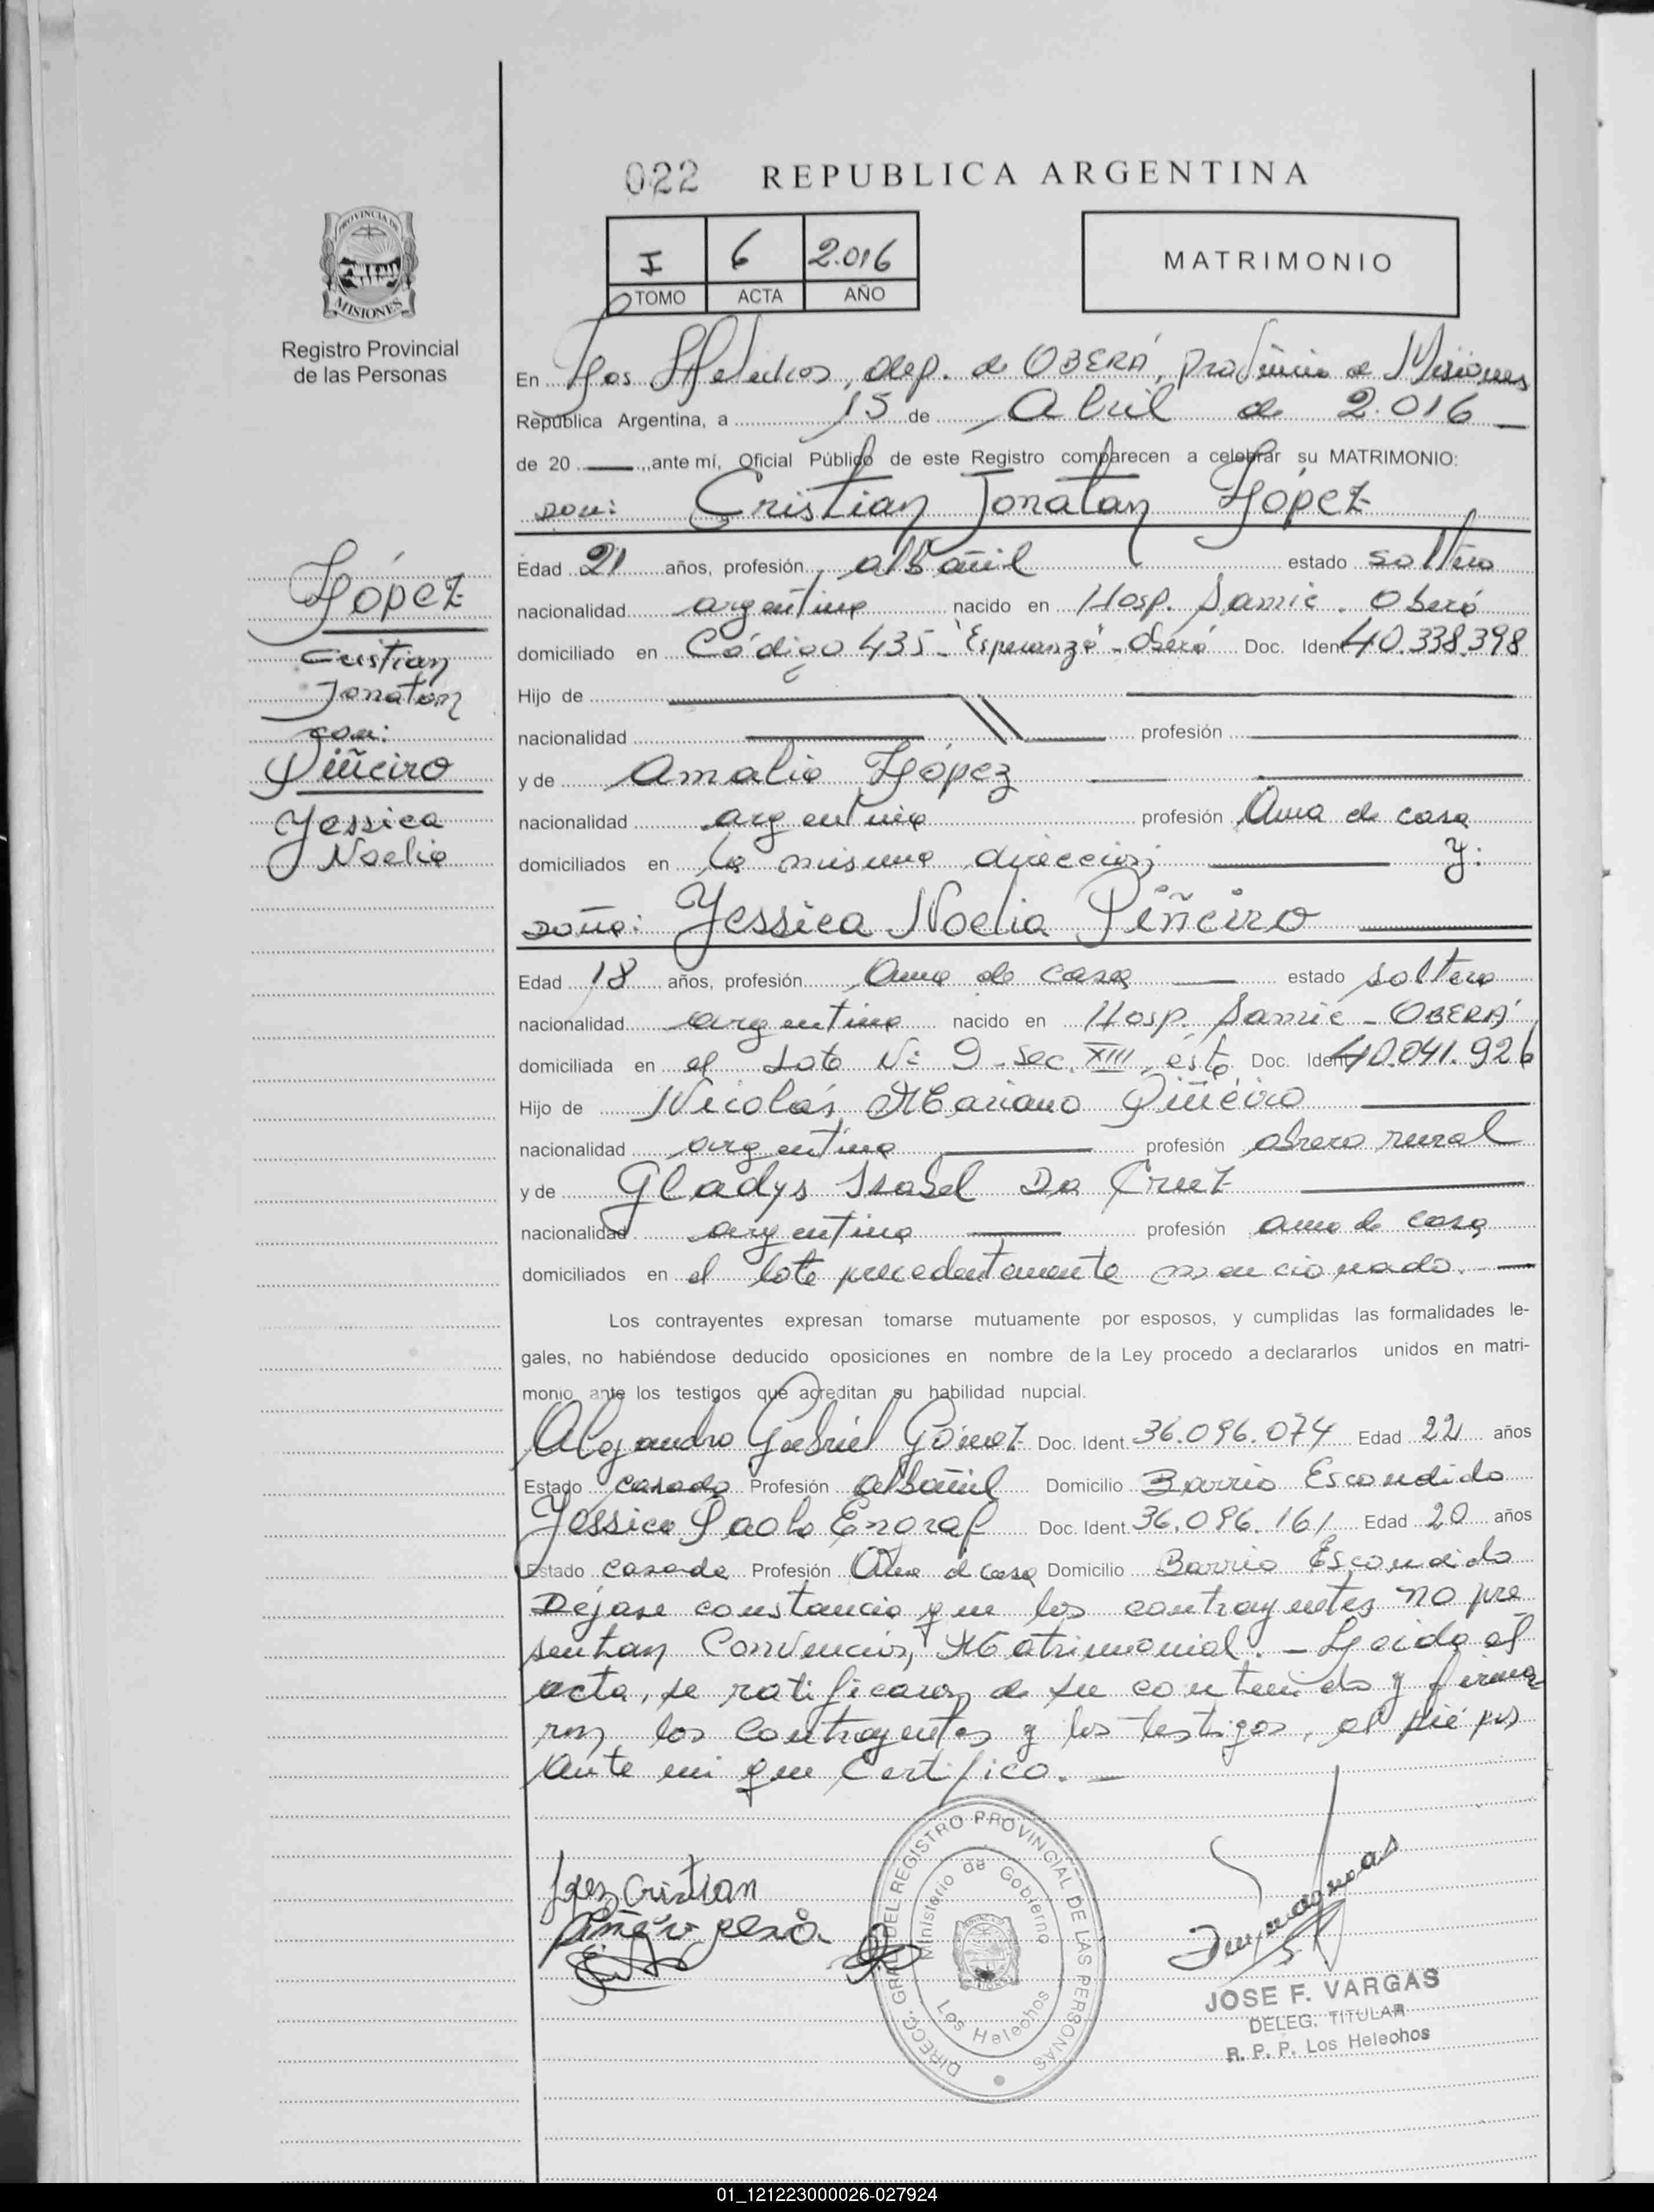 022 REPUBLICA ARGENTINA
PROVINCIA DE
MISIONES
Registro Provincial
de las Personas
I 6 2.016
TOMO ACTA AÑO
MATRIMONIO
En Los Helechos, dep. de OBERÁ, Provincia de Misiones
República Argentina, a 15 de Abril de 2.016
de 20 , ante mí, Oficial Público de este Registro comparecen a celebrar su MATRIMONIO:
DON: Cristian Jonatan López
López
Cristian
Jonatan
con:
Piñeiro
Yessica
Noelia
Edad 21 años, profesión albañil estado soltero
nacionalidad argentina nacido en Hosp. Samic. Oberá
domiciliado en Código 435 - "Esperanza" - Oberá Doc. Ident 40.338.398
Hijo de
nacionalidad profesión
y de Amalia López
nacionalidad argentina profesión Ama de casa
domiciliados en la misma dirección; y:
DOÑA: Yessica Noelia Piñeiro
Edad 18 años, profesión Ama de casa estado soltera
nacionalidad argentina nacido en Hosp. Samic - OBERÁ
domiciliada en el Lote Nº 9 - Sec. XIII, ésta Doc. Ident 40.041.926
Hijo de Nicolás Mariano Piñeiro
nacionalidad argentina profesión obrero rural
y de Gladys Isabel Da Cruz
nacionalidad argentina profesión ama de casa
domiciliados en el lote precedentemente mencionado.
Los contrayentes expresan tomarse mutuamente por esposos, y cumplidas las formalidades le-
gales, no habiéndose deducido oposiciones en nombre de la Ley procedo a declararlos unidos en matri-
monio ante los testigos que acreditan su habilidad nupcial.
Alejandro Gabriel Gómez Doc. Ident. 36.096.074 Edad 22 años
Estado casado Profesión albañil Domicilio Barrio Escondido
Yessica Paola Engraf Doc. Ident. 36.096.161 Edad 20 años
Estado casada Profesión Ama de casa Domicilio Barrio Escondido
Déjase constancia que los contrayentes no pre
sentan Convención Matrimonial. - Leída el
acta, se ratificaron de su contenido y firma
ron los Contrayentes y los testigos, al pié por
Ante mi que Certifico. -
López Cristian
DIRECC. GRAL. DEL REGISTRO PROVINCIAL DE LAS PERSONAS
Ministerio de Gobierno
Los Helechos
JOSE F. VARGAS
DELEG. TITULAR
R. P. P. Los Helechos
01_121223000026-027924